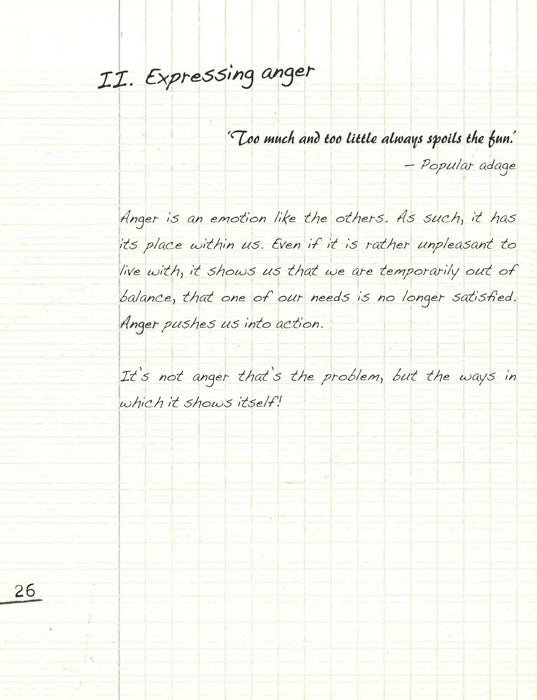 II. Expressing anger
'Too much and too little always spoils the fun.'
– Popular adage
Anger is an emotion like the others. As such, it has
its place within us. Even if it is rather unpleasant to
live with, it shows us that we are temporarily out of
balance, that one of our needs is no longer satisfied.
Anger pushes us into action.
It's not anger that's the problem, but the ways in
which it shows itself!
26